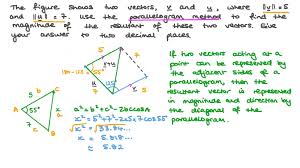 The figure shows two vectors, v and u, where ||v|| = 5
and ||u|| = 7. Use the parallelogram method to find the
magnitude of the resultant of these two vectors. Give
your answer to two decimal places.
If two vectors acting at a
point can be represented by
the adjacent sides of a
parallelogram, then the
resultant vector is represented
in magnitude and direction by
the diagonal of the
parallelogram.
5
7
5
125°
B
5
C
A
55°
7
a² = b² + c² - 2bc cos A
x² = 5² + 7² - 2×5×7 cos 55°
x = 5.818...
≈ 5.82